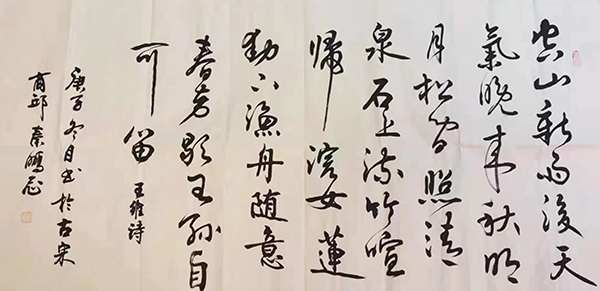 空山新雨後天
氣晚来秋明
月松间照清
泉石上流竹喧
歸浣女蓮
動下漁舟随意
春芳歇王孫自
可留 王维诗
庚子冬月书於古宋
商邱 秦鹏